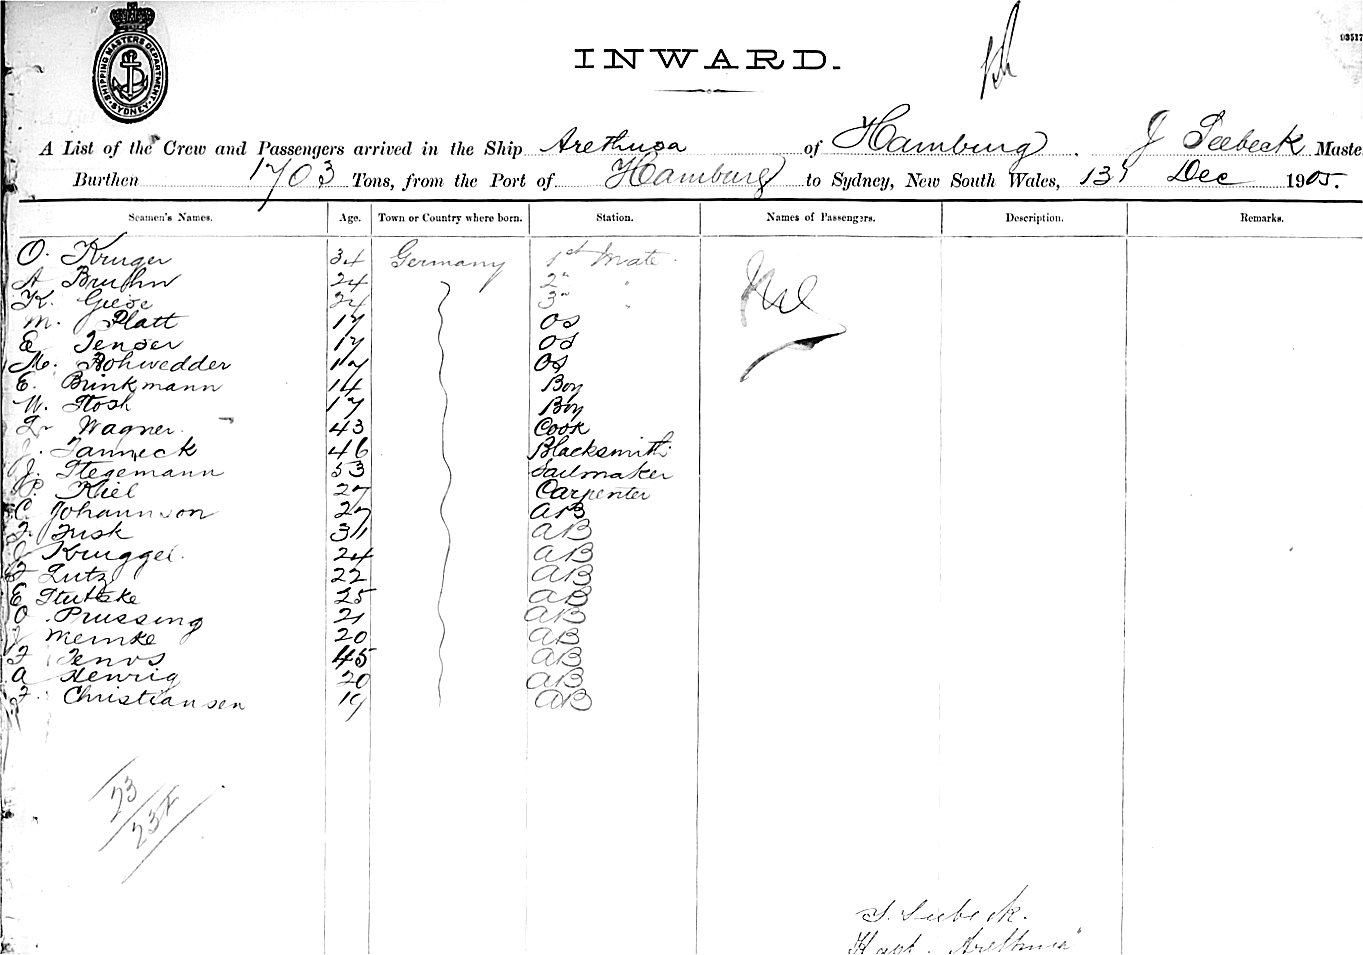 SHIPPING MASTERS DEPARTMENT SYDNEY
INWARD.
A List of the Crew and Passengers arrived in the Ship Arethusa of Hamburg. J Seebeck Maste
Burthen 1703 Tons, from the Port of Hamburg to Sydney, New South Wales, 13, Dec 1905.
Seamen's Names. Age. Town or Country where born. Station. Names of Passengers. Description. Remarks.
O. Kruger 34 Germany 1st Mate. Nil
A Bruhn 24 2" "
K. Giese 24 3" "
M. Platt 17 OS
E Jenser 17 OS
M. Rohwedder 17 OS
E. Brinkmann 14 Boy
W. Stosh 17 Boy
L. Wagner. 43 Cook
Janneck 46 Blacksmith
J. Stegemann 53 Sailmaker
P. Kiel 27 Carpenter
C. Johannson 27 AB
F. Fusk 31 AB
Kruggel. 24 AB
F Lutz 22 AB
E Stutzke 25 AB
O. Prussing 21 AB
J Meinke 20 AB
F Jenss 45 AB
A Henrig 20 AB
F. Christiansen 19 AB
23
23F
J. Seebeck.
Kapt. Arethusa"